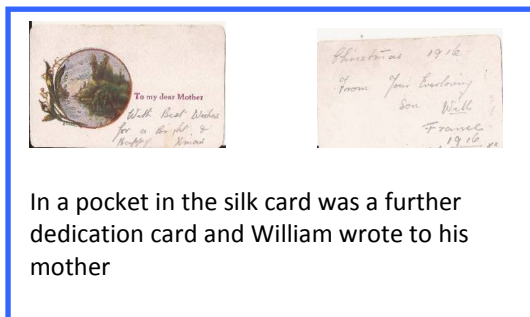 To my dear Mother
With Best Wishes
for a Bright &
Happy Xmas
Christmas 1916
From Your Everloving
Son Will
France
1916
In a pocket in the silk card was a further
dedication card and William wrote to his
mother